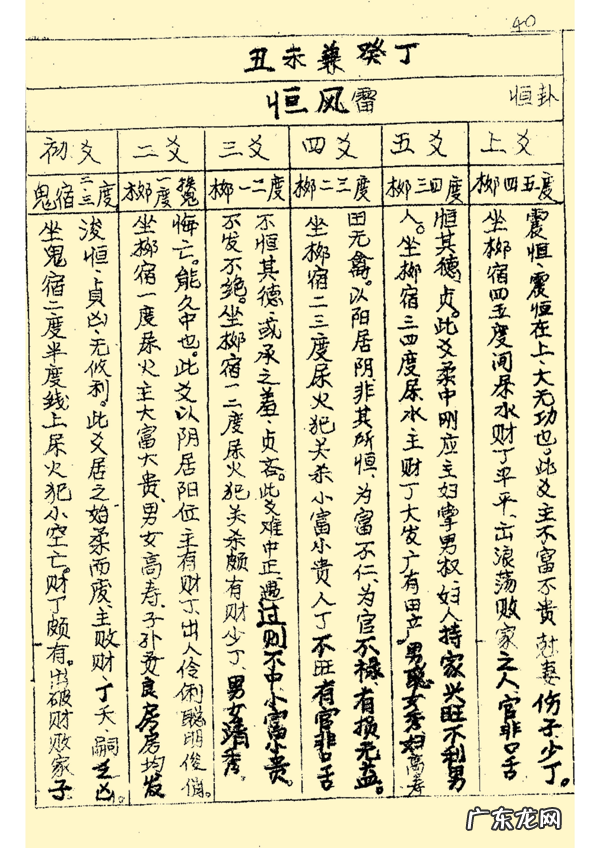 40
丁癸兼未丑
雷风恒
恒卦
上爻
柳四五度
震恒、震恒在上、大无功也。此爻主不富不贵、尅妻伤子少丁。
坐柳宿四五度间尿水财丁平平、出浪荡败家之人、官非口舌
五爻
柳三四度
恒其德、贞。此爻柔中刚应主妇孽男权、妇人持家兴旺不利男
人。坐柳宿三四度尿水、主财丁大发广有田产男聪女秀妇高寿
四爻
柳二三度
田无禽。以阳居阴非其所恒、为富不仁、为官不禄、有损无益。
坐柳宿二三度尿火犯关杀小富小贵人丁不旺有官非口舌
三爻
柳一二度
不恒其德、或承之羞、贞吝。此爻难中正遇过则不中小富小贵。
不发不绝。坐柳宿一二度尿火犯关杀颇有财少丁、男女清秀。
二爻
柳一度
悔亡。能久中也。此爻以阴居阳位主有财丁、出人伶俐聪明俊俏。
坐柳宿一度尿火主大富大贵、男女高寿、子孙贤良房房均发
初爻
鬼宿二.三度
浚恒、贞凶、无攸利。此爻居之始柔而废、主败财、丁夭、嗣乏凶。
坐鬼宿二度半度线上尿火犯小空亡。财丁颇有。出破财败家子
广东龙网